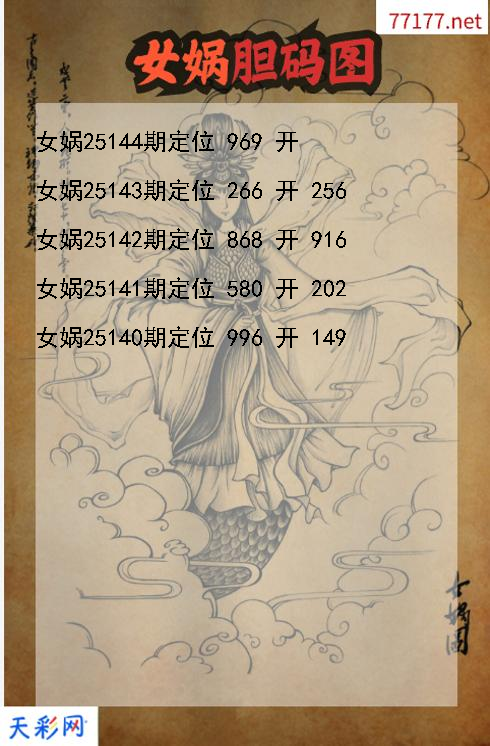 77177.net
女娲胆码图
女娲25144期定位 969 开
女娲25143期定位 266 开 256
女娲25142期定位 868 开 916
女娲25141期定位 580 开 202
女娲25140期定位 996 开 149
女娲图
天彩网